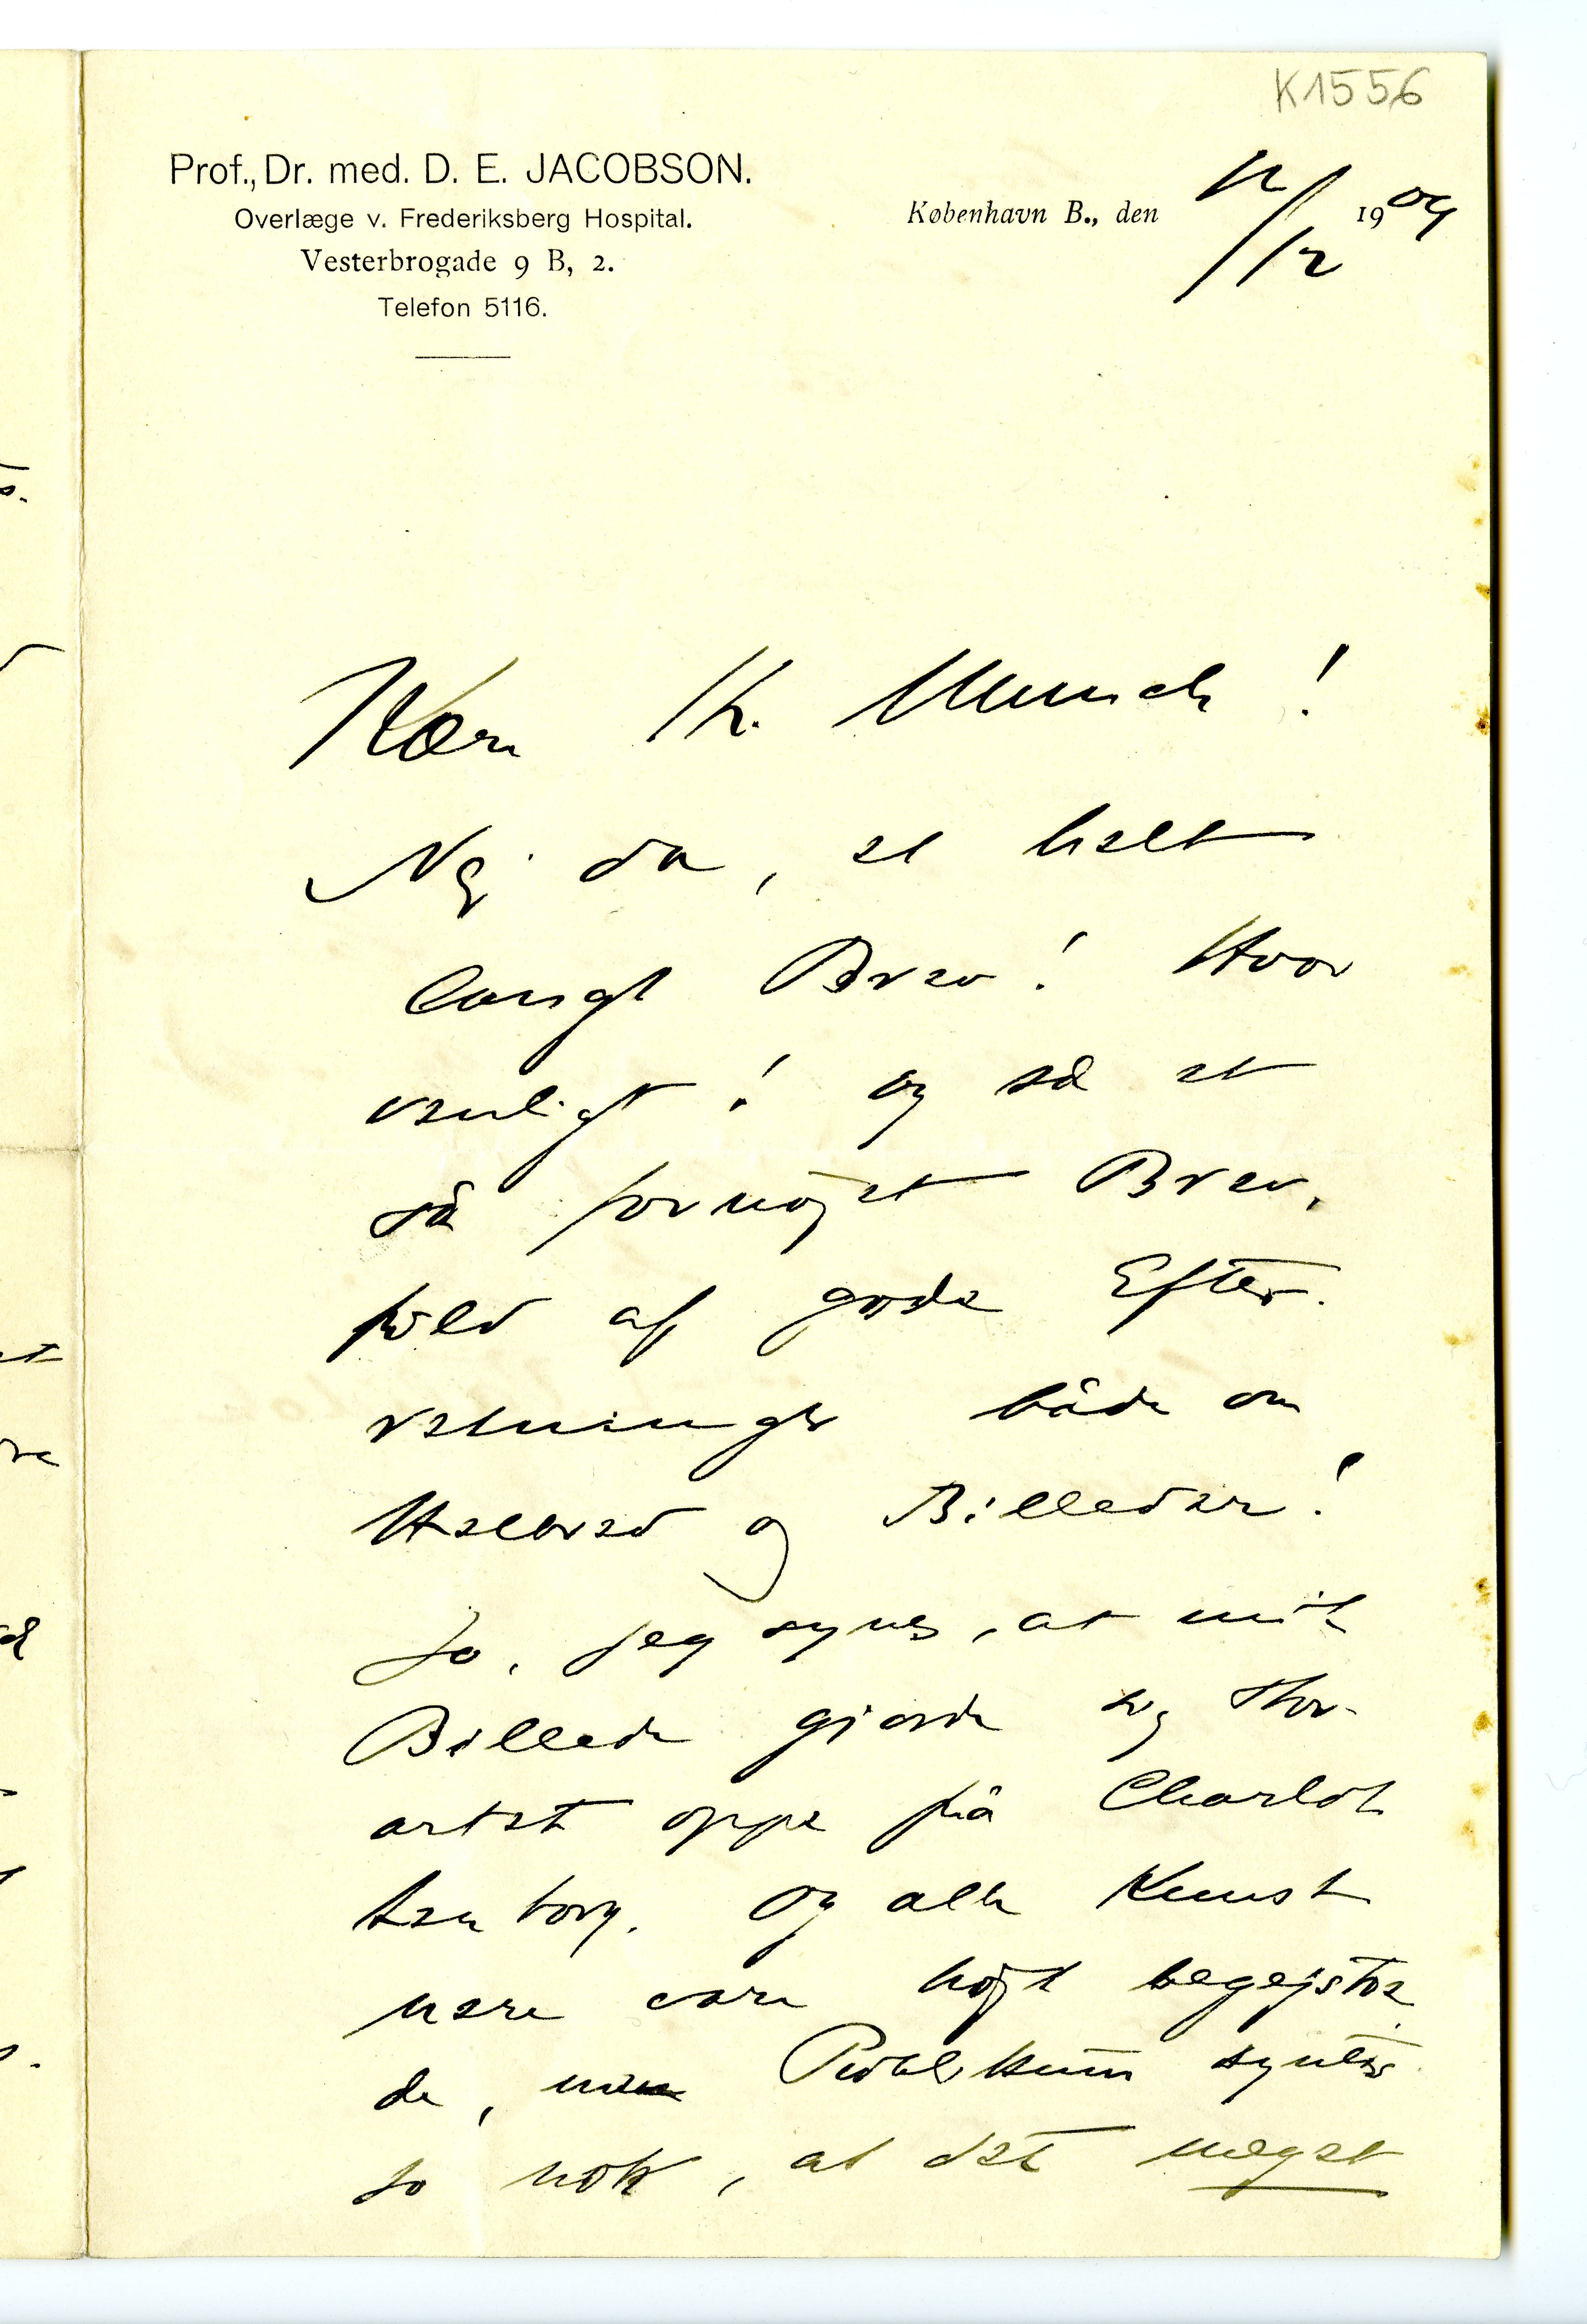 K1556
Prof., Dr. med. D. E. JACOBSON.
Overlæge v. Frederiksberg Hospital.
Vesterbrogade 9 B, 2.
Telefon 5116.
København B., den 12/12 1909
Kære Hr. Munch!
Nej da, et helt
langt Brev! Hvor
venligt! Og så et
så fornøjet Brev,
fuld af gode Efter-
retninger både om
Helbred og Billeder!
Jo, jeg synes, at mit
Billede gjorde sig Stor-
artet oppe på Charlot
tenborg. Og alle Kunst
nere vare højt begejstre
de, Publikum syntes
jo nok, at det meget